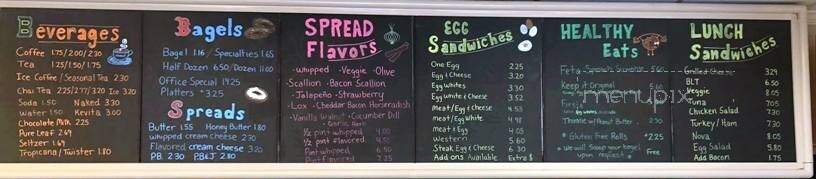 Beverages
Coffee 1.75/2.00/2.30
Tea 1.25/1.50/1.75
Ice Coffee/Seasonal Tea 2.30
Chai Tea 2.25/2.77/3.20 Ice 3.20
Soda 1.50 Naked 3.30
Water 1.50 Kevita 3.00
Chocolate Milk 2.25
Pure Leaf 2.69
Seltzer 1.69
Tropicana/Twister 1.80
Bagels
Bagel 1.16 / Specialties 1.65
Half Dozen 6.50/Dozen 11.00
Office Special 14.25
Platters *3.25
Spreads
Butter 1.55 Honey Butter 1.80
Whipped cream cheese 2.30
Flavored cream cheese 3.20
P.B. 2.30 P.B&J 2.80
SPREAD
Flavors
-Whipped -Veggie -Olive
-Scallion -Bacon Scallion
-Jalapeño -Strawberry
-Lox -Cheddar Bacon Horseradish
-Vanilla Walnut -Cucumber Dill
1/2 pint whipped 4.00
1/2 pint flavored 4.50
Pint whipped 6.50
Pint flavored 7.25
EGG
Sandwiches
One Egg 2.25
Egg & Cheese 3.20
Egg Whites 3.30
Egg White & Cheese 3.52
Meat/Egg & Cheese 4.53
Meat/Egg White 4.98
Meat & Egg 4.03
Western 5.60
Steak Egg & Cheese 6.30
Add ons Available Extra $
HEALTHY
Eats
Feta 5.60
Keep it Original
2.30
* Gluten Free Rolls *2.25
* we will Scoop your bagel
upon request * Free
LUNCH
Sandwiches
Grilled Cheese 3.29
BLT 6.50
Veggie 8.05
Tuna 7.05
Chicken Salad 7.30
Turkey/Ham 7.30
Nova 8.05
Egg Salad 5.80
Add Bacon 1.75
menupix